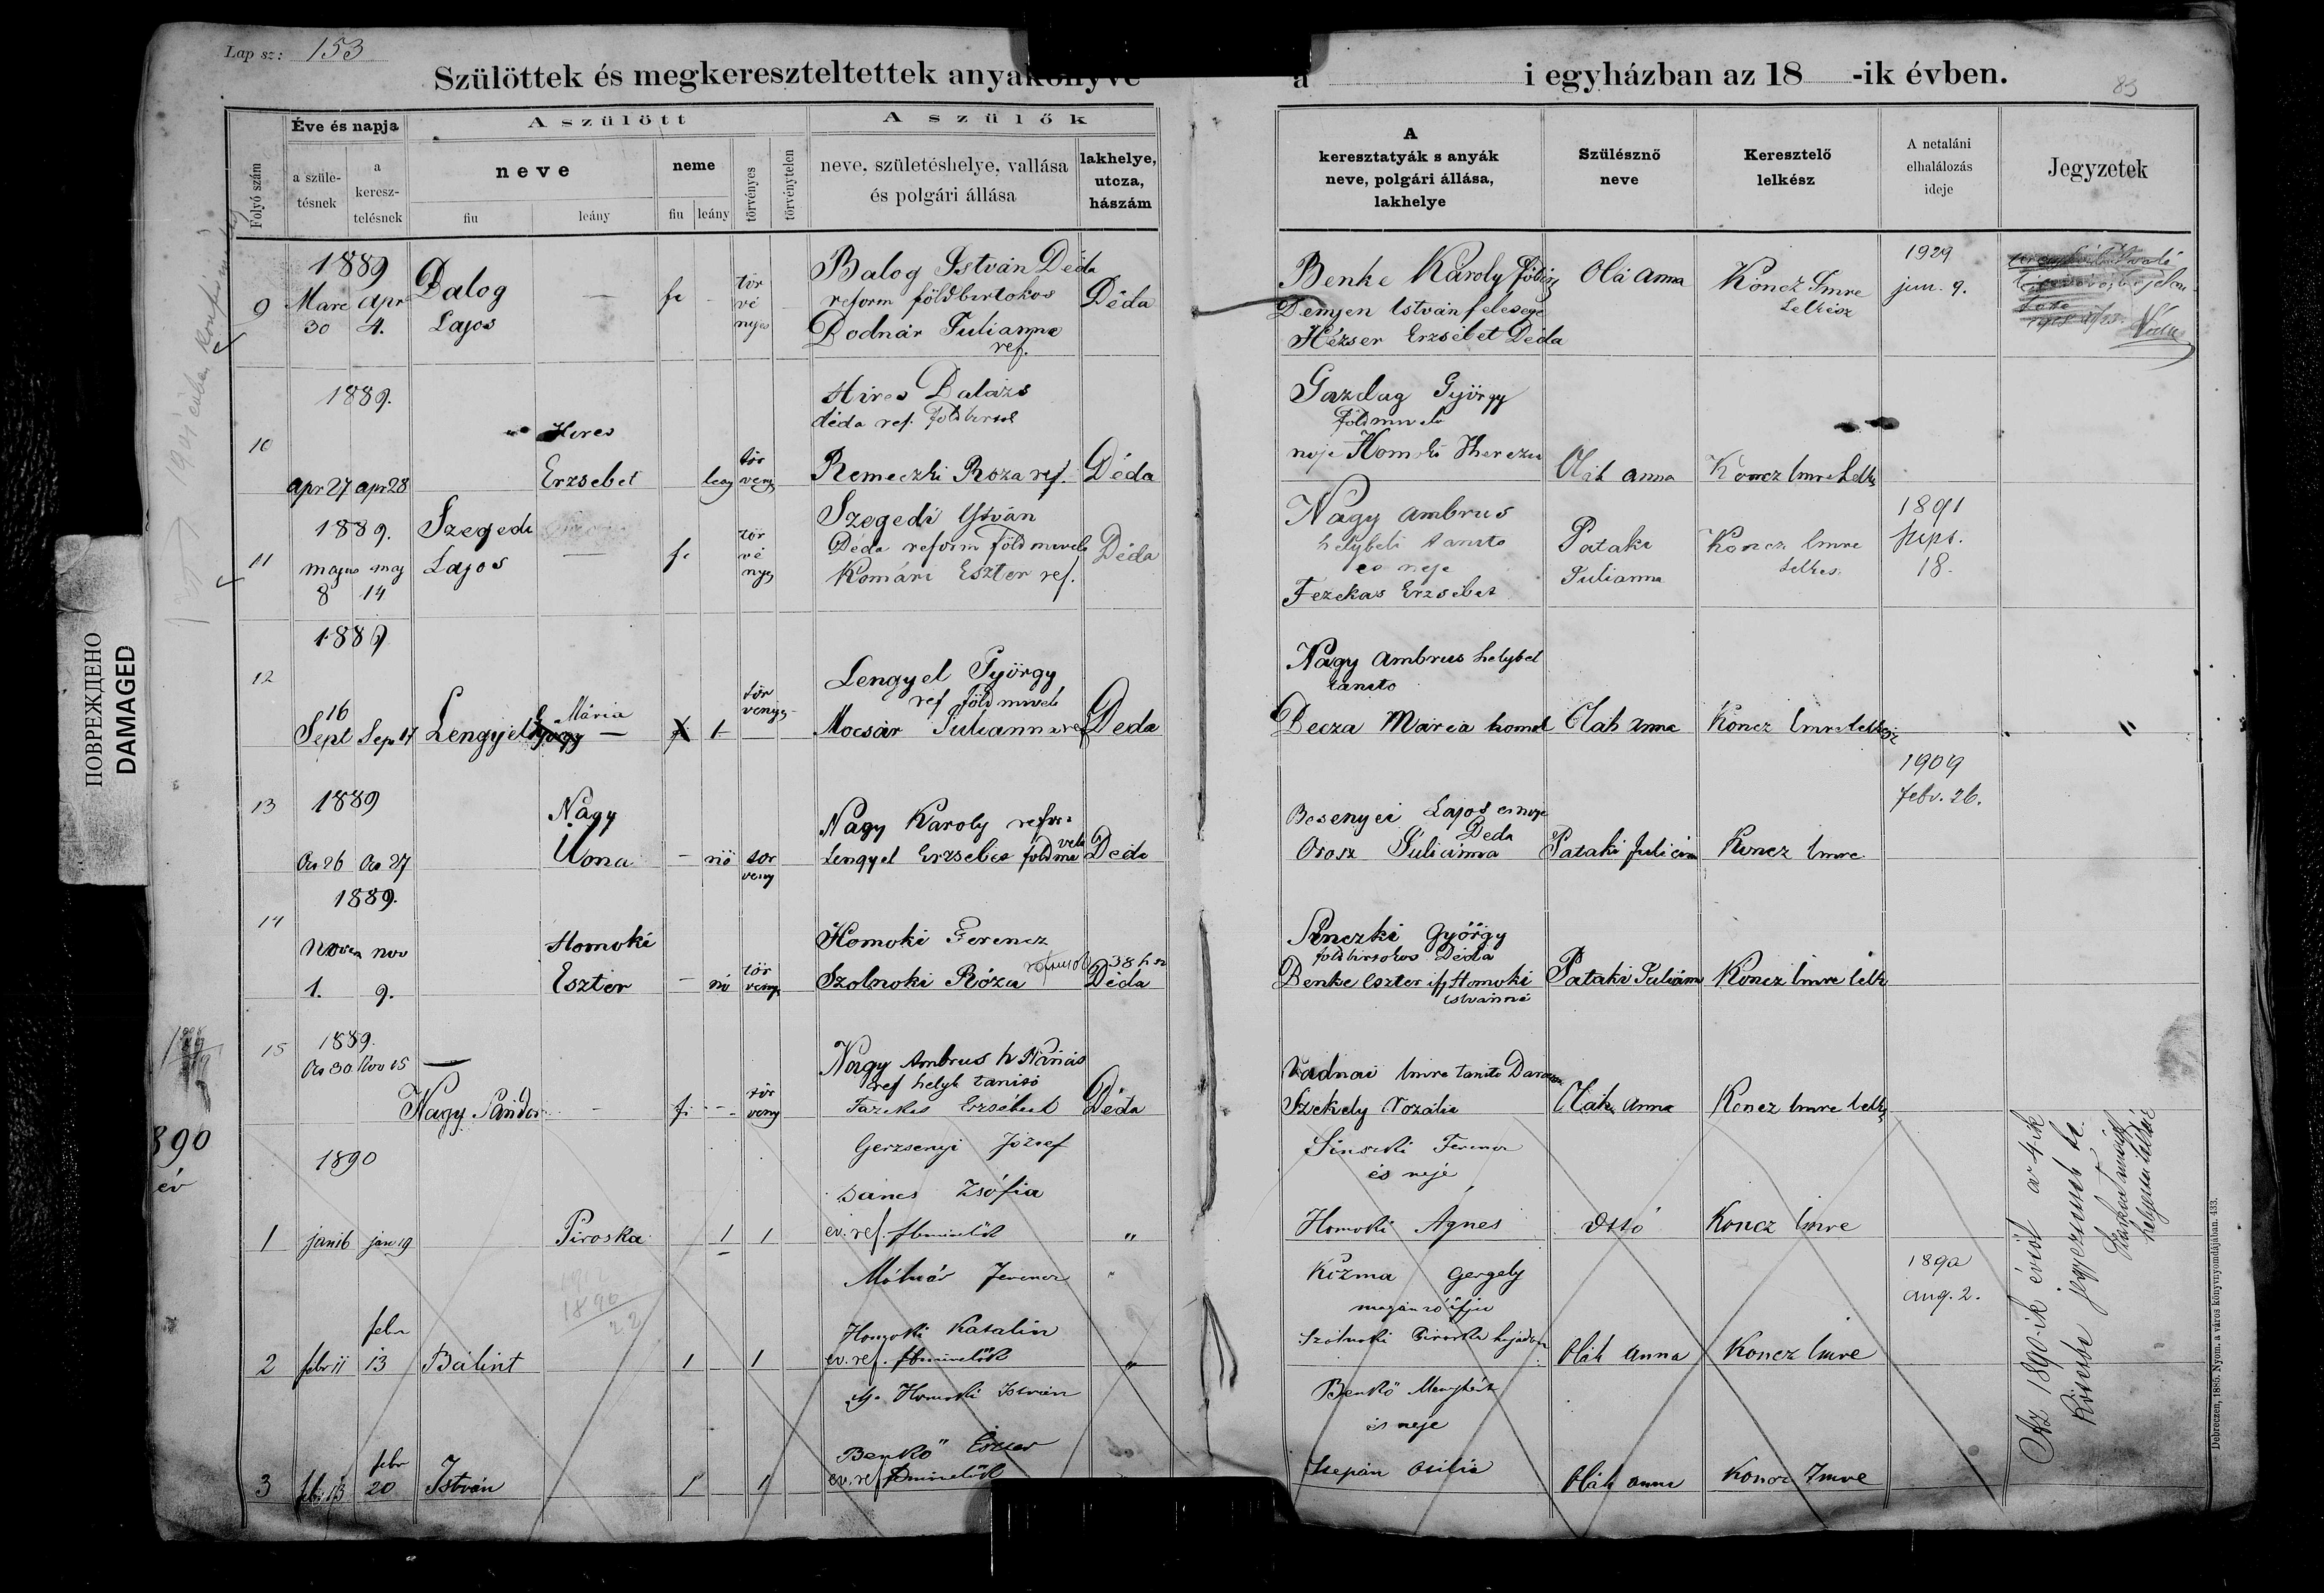 Lap sz: 153
Szülöttek és megkereszteltettek anyakönyve
a i egyházban az 18 -ik évben.
83
Folyó szám
Éve és napja
a születésnek
a keresztelésnek
A szülött
neve
fiu
leány
neme
fiu
leány
törvényes
törvénytelen
A szülők
neve, születéshelye, vallása és polgári állása
lakhelye, utcza, hászám
A keresztatyák s anyák neve, polgári állása, lakhelye
Szülésznő neve
Keresztelő lelkész
A netaláni elhalálozás ideje
Jegyzetek
9
1889
Marc apr
30 4.
Balog
Lajos
—
fi
tör
vé
nyes
Balog István Déda
reform földbirtokos
Bodnár Julianna
ref.
Déda
Benke Károly
Demjen István felesege
Hézser Erzsébet Déda
Olá Anna
Koncz Imre
Lelkész
1929
jun. 9.
10
1889.
apr 27 apr 28
Hires
Erzsebet
leay
tör
veny
Hires Balázs
déda ref. földbirtok
Remeczki Roza ref.
Déda
Gazdag György
földmivelo
neje Homoki Therezia
Oláh Anna
Koncz Imre Lelk
11
1889.
majus maj
8 14
Szegedi
Lajos
—
fi
tör
vé
nyes
Szegedi István
Déda reform földmivelo
Komári Eszter ref.
Déda
Nagy Ambrus
helybeli tanito
es neje
Fezekas Erzsébet
Pataki
Julianna
Koncz Imre
Lelkes
1891
Sept.
18.
12
1889
16
Sept Sep 17
Lengyel
Mária
—
fi 1
tör
venyes
Lengyel György
ref földmivelo
Mocsár Julianna ref
Deda
Nagy Ambrus helybel
tanito
Decza Maria
Oláh Anna
Koncz Imre lelkész
"
13
1889
Oct 26 Oct 27
Nagy
Ilona
— nö
tör
veny
Nagy Karoly refor
Lengyel Erzsebet földmivelo
Deda
Besenyei Lajos es neje
Deda
Orosz Juliánna
Pataki Julianna
Koncz Imre
1909
febr. 26.
14
1889.
Noven nov
1. 9.
Homoki
Eszter
— nö
tör
venyes
Homoki Ferencz
Szolnoki Róza
38 h sz
Déda
Sinczki György
földbirtokos Déda
Benke Eszter ifj Homoki
Istvánné
Pataki Juliánna
Koncz Imre lelk
15
1889.
Oct 30 Nov 15
—
Nagy Sándor
—
fi —
tör
veny
Nagy Ambrus
ref helyb tanitó
Fazekas Erzsébet
Déda
Vadnai Imre tanito
Szekely Rozália
Oláh Anna
Koncz Imre lelk
890
év
1890
1
jan 16 jan 19
Piroska
1 1
Gerzsenyi József
Dancs Zsófia
ev. ref. fbmivelők
"
Sinczki Ferencz
és neje
Homoki Ágnes
Ottó
Koncz Imre
2
febr 11
febr
13
Bálint
1 1
Molnár Ferencz
Homoki Katalin
ev. ref. fbmivelők
"
Kizma Gergely
Szolnoki Piroska hajadon
Oláh Anna
Koncz Imre
1890
aug. 2.
1896
22
3
febr 13
febr
20
István
1 1
ifj. Homoki István
Benkő Eszter
ev. ref fbmivelők
Benkő Menyhért
és neje
Oláh Anna
Koncz Imre
Az 1890-ik évtöl a 4-ik
Kötetbe jegyeztetnek be.
helyettes lelkész
Debreczen, 1885. Nyom. a város könyvnyomdájában. 433.
ПОВРЕЖДЕНО
DAMAGED